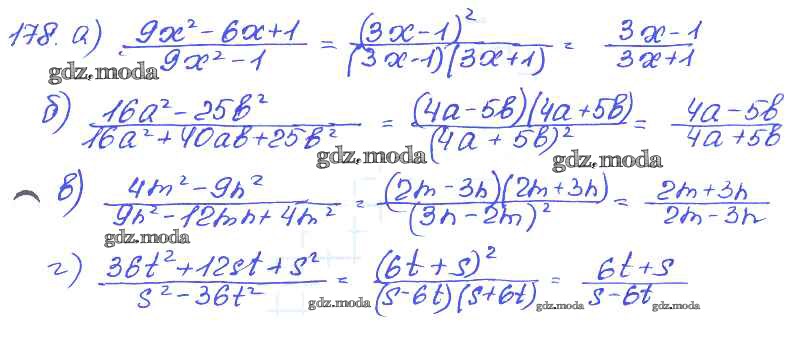 178. а) (9x² - 6x + 1)/(9x² - 1) = (3x - 1)²/((3x - 1)(3x + 1)) = (3x - 1)/(3x + 1)
gdz.moda
б) (16a² - 25b²)/(16a² + 40ab + 25b²) = ((4a - 5b)(4a + 5b))/(4a + 5b)² = (4a - 5b)/(4a + 5b)
gdz.moda gdz.moda
в) (4m² - 9n²)/(9n² - 12mn + 4m²) = ((2m - 3n)(2m + 3n))/(3n - 2m)² = (2m + 3n)/(2m - 3n)
gdz.moda
г) (36t² + 12st + s²)/(s² - 36t²) = (6t + s)²/((s - 6t)(s + 6t)) = (6t + s)/(s - 6t)
gdz.moda gdz.moda gdz.moda